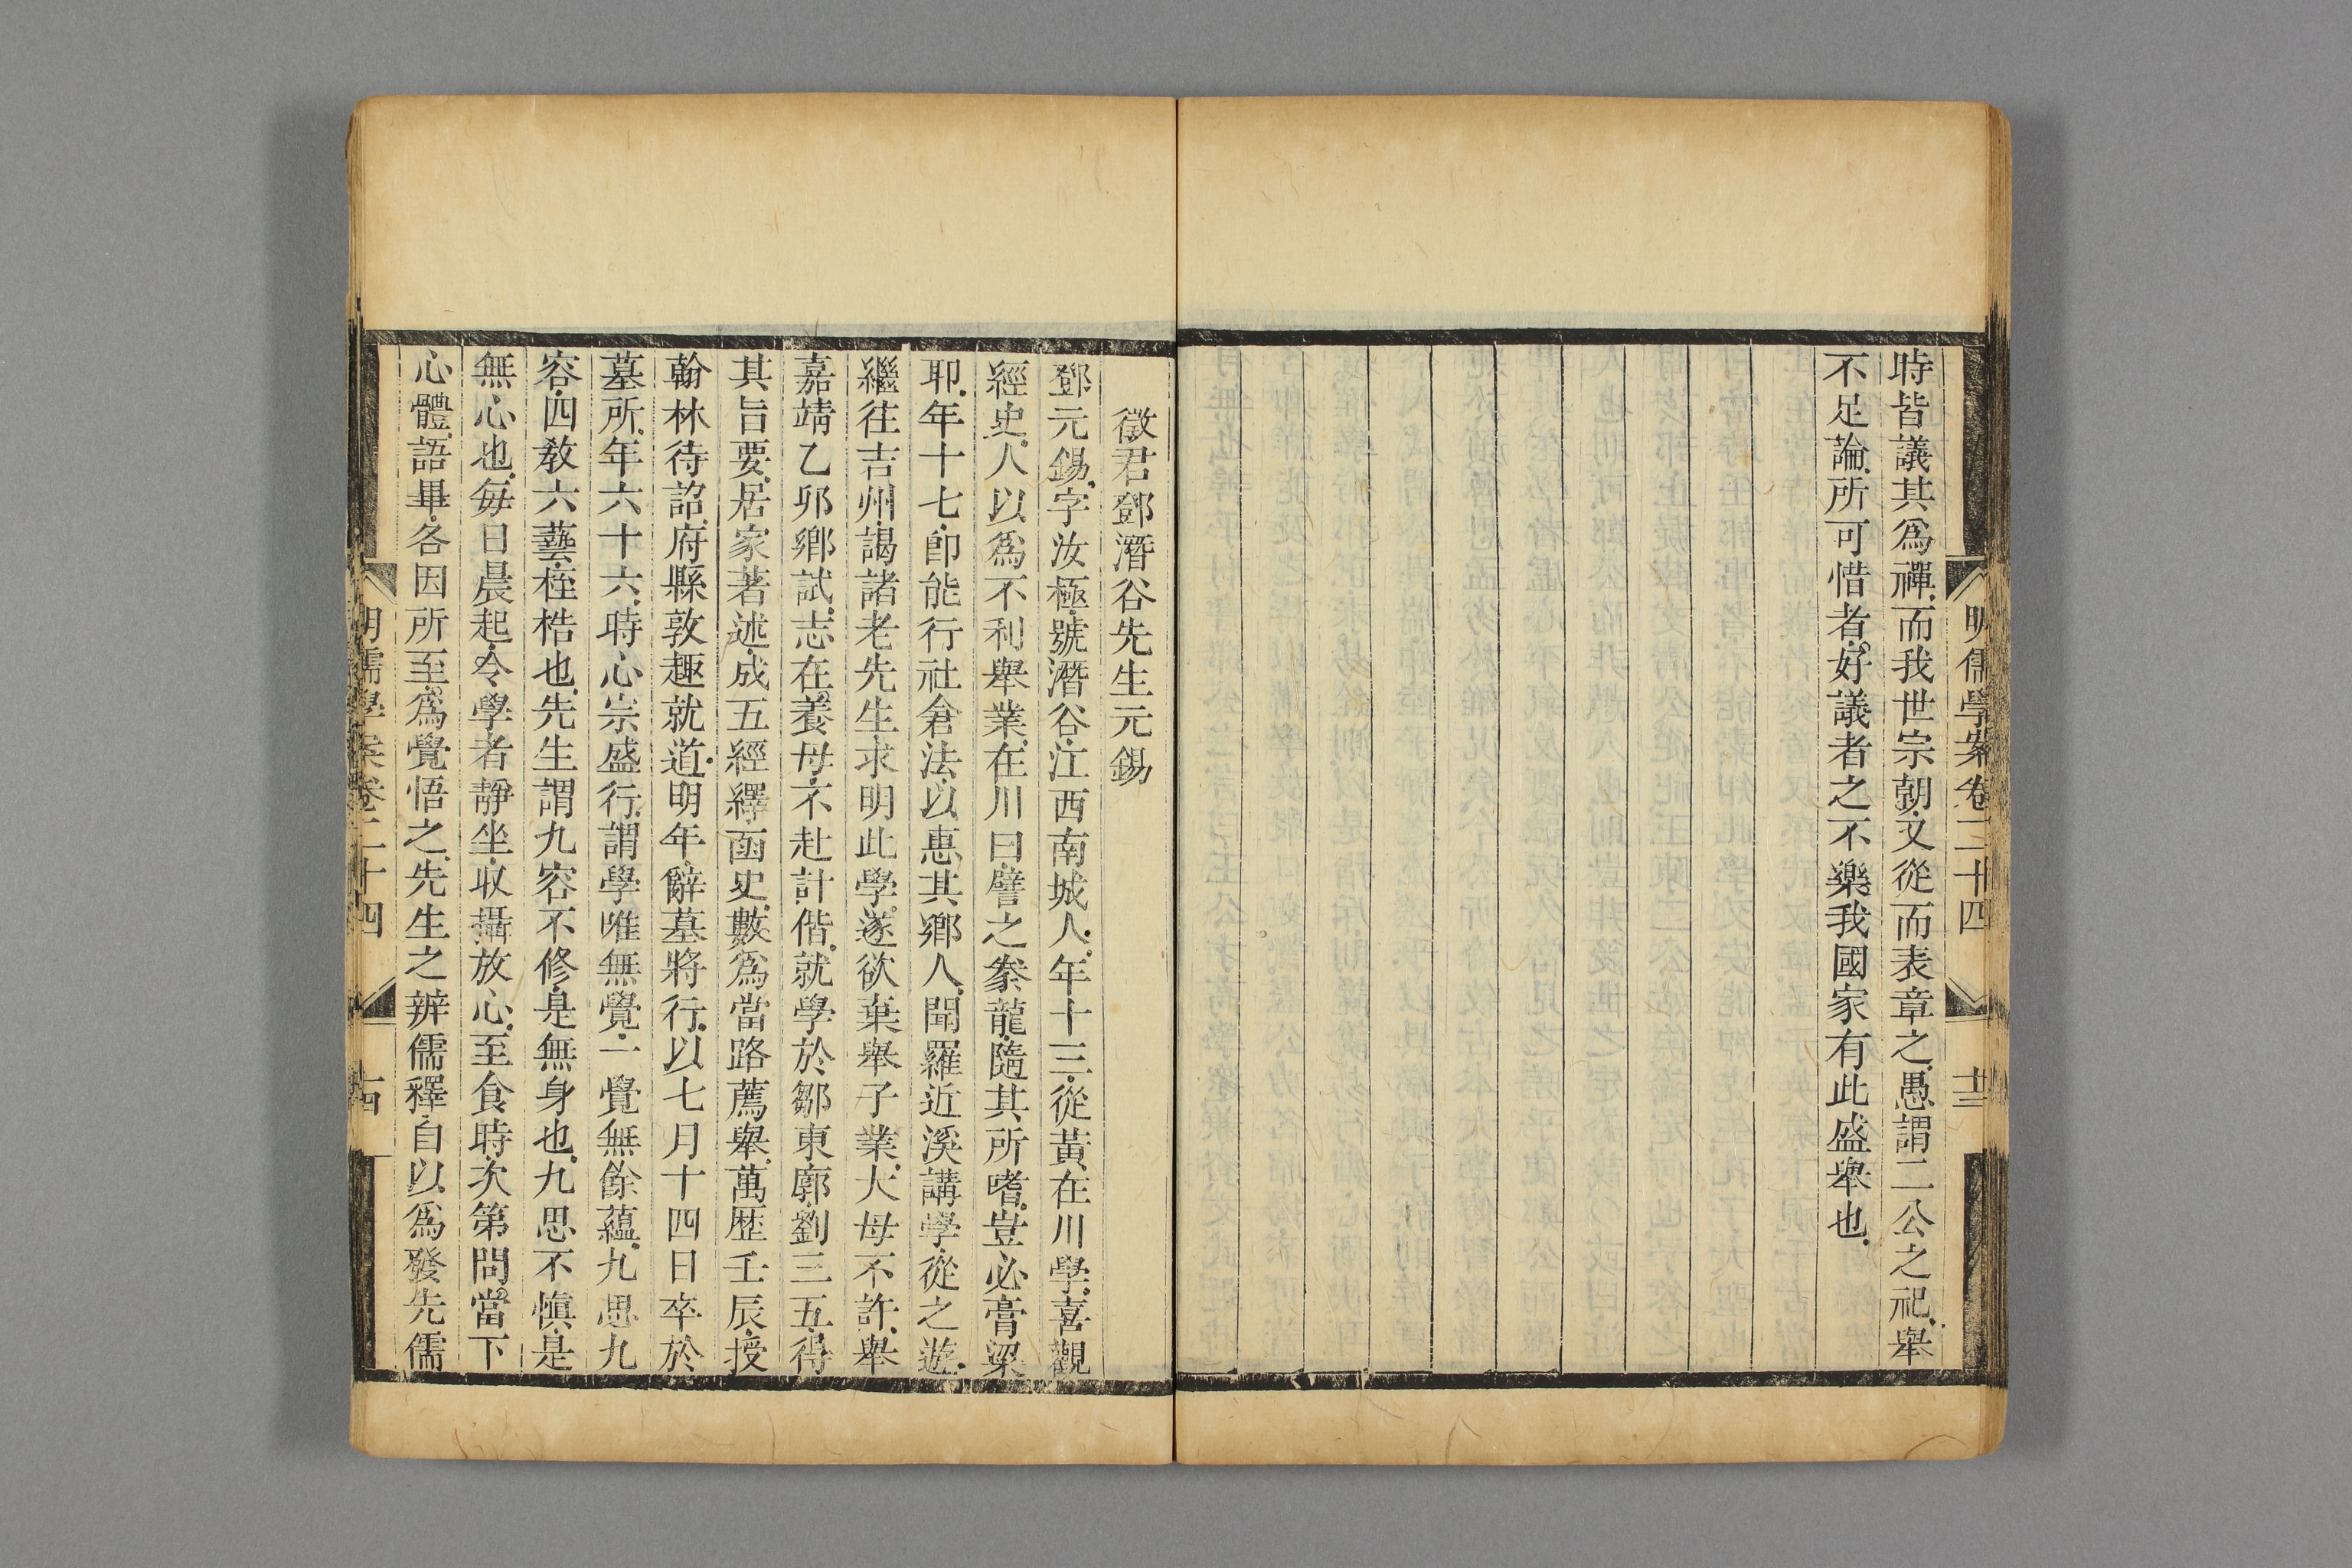 明儒學案卷二十四
十三
時皆議其爲禪.而我世宗朝.又從而表章之.愚謂二公之祀.舉
不足論.所可惜者.好議者之不樂我國家有此盛舉也.
徵君鄧潛谷先生元錫
鄧元錫.字汝極.號潛谷.江西南城人.年十三.從黃在川學.喜觀
經史.人以爲不利舉業.在川曰.譬之豢龍.隨其所嗜.豈必膏粱
耶.年十七.卽能行社倉法.以惠其鄉人.聞羅近溪講學.從之遊.
繼往吉州.謁諸老先生.求明此學.遂欲棄舉子業.大母不許.舉
嘉靖乙卯鄉試.志在養母.不赴計偕.就學於鄒東廓.劉三五.得
其旨要.居家著述.成五經繹.函史.數爲當路薦舉.萬歷壬辰.授
翰林待詔.府縣敦趣就道.明年.辭墓將行.以七月十四日卒於
墓所.年六十六.時心宗盛行.謂學唯無覺.一覺無餘蘊.九思九
容.四敎六藝.桎梏也.先生謂九容不修.是無身也.九思不愼.是
無心也.每日晨起.令學者靜坐.收攝放心.至食時.次第問.當下
心體.語畢.各因所至.爲覺悟之.先生之辨儒釋.自以爲發先儒
明儒學案卷二十四
十四